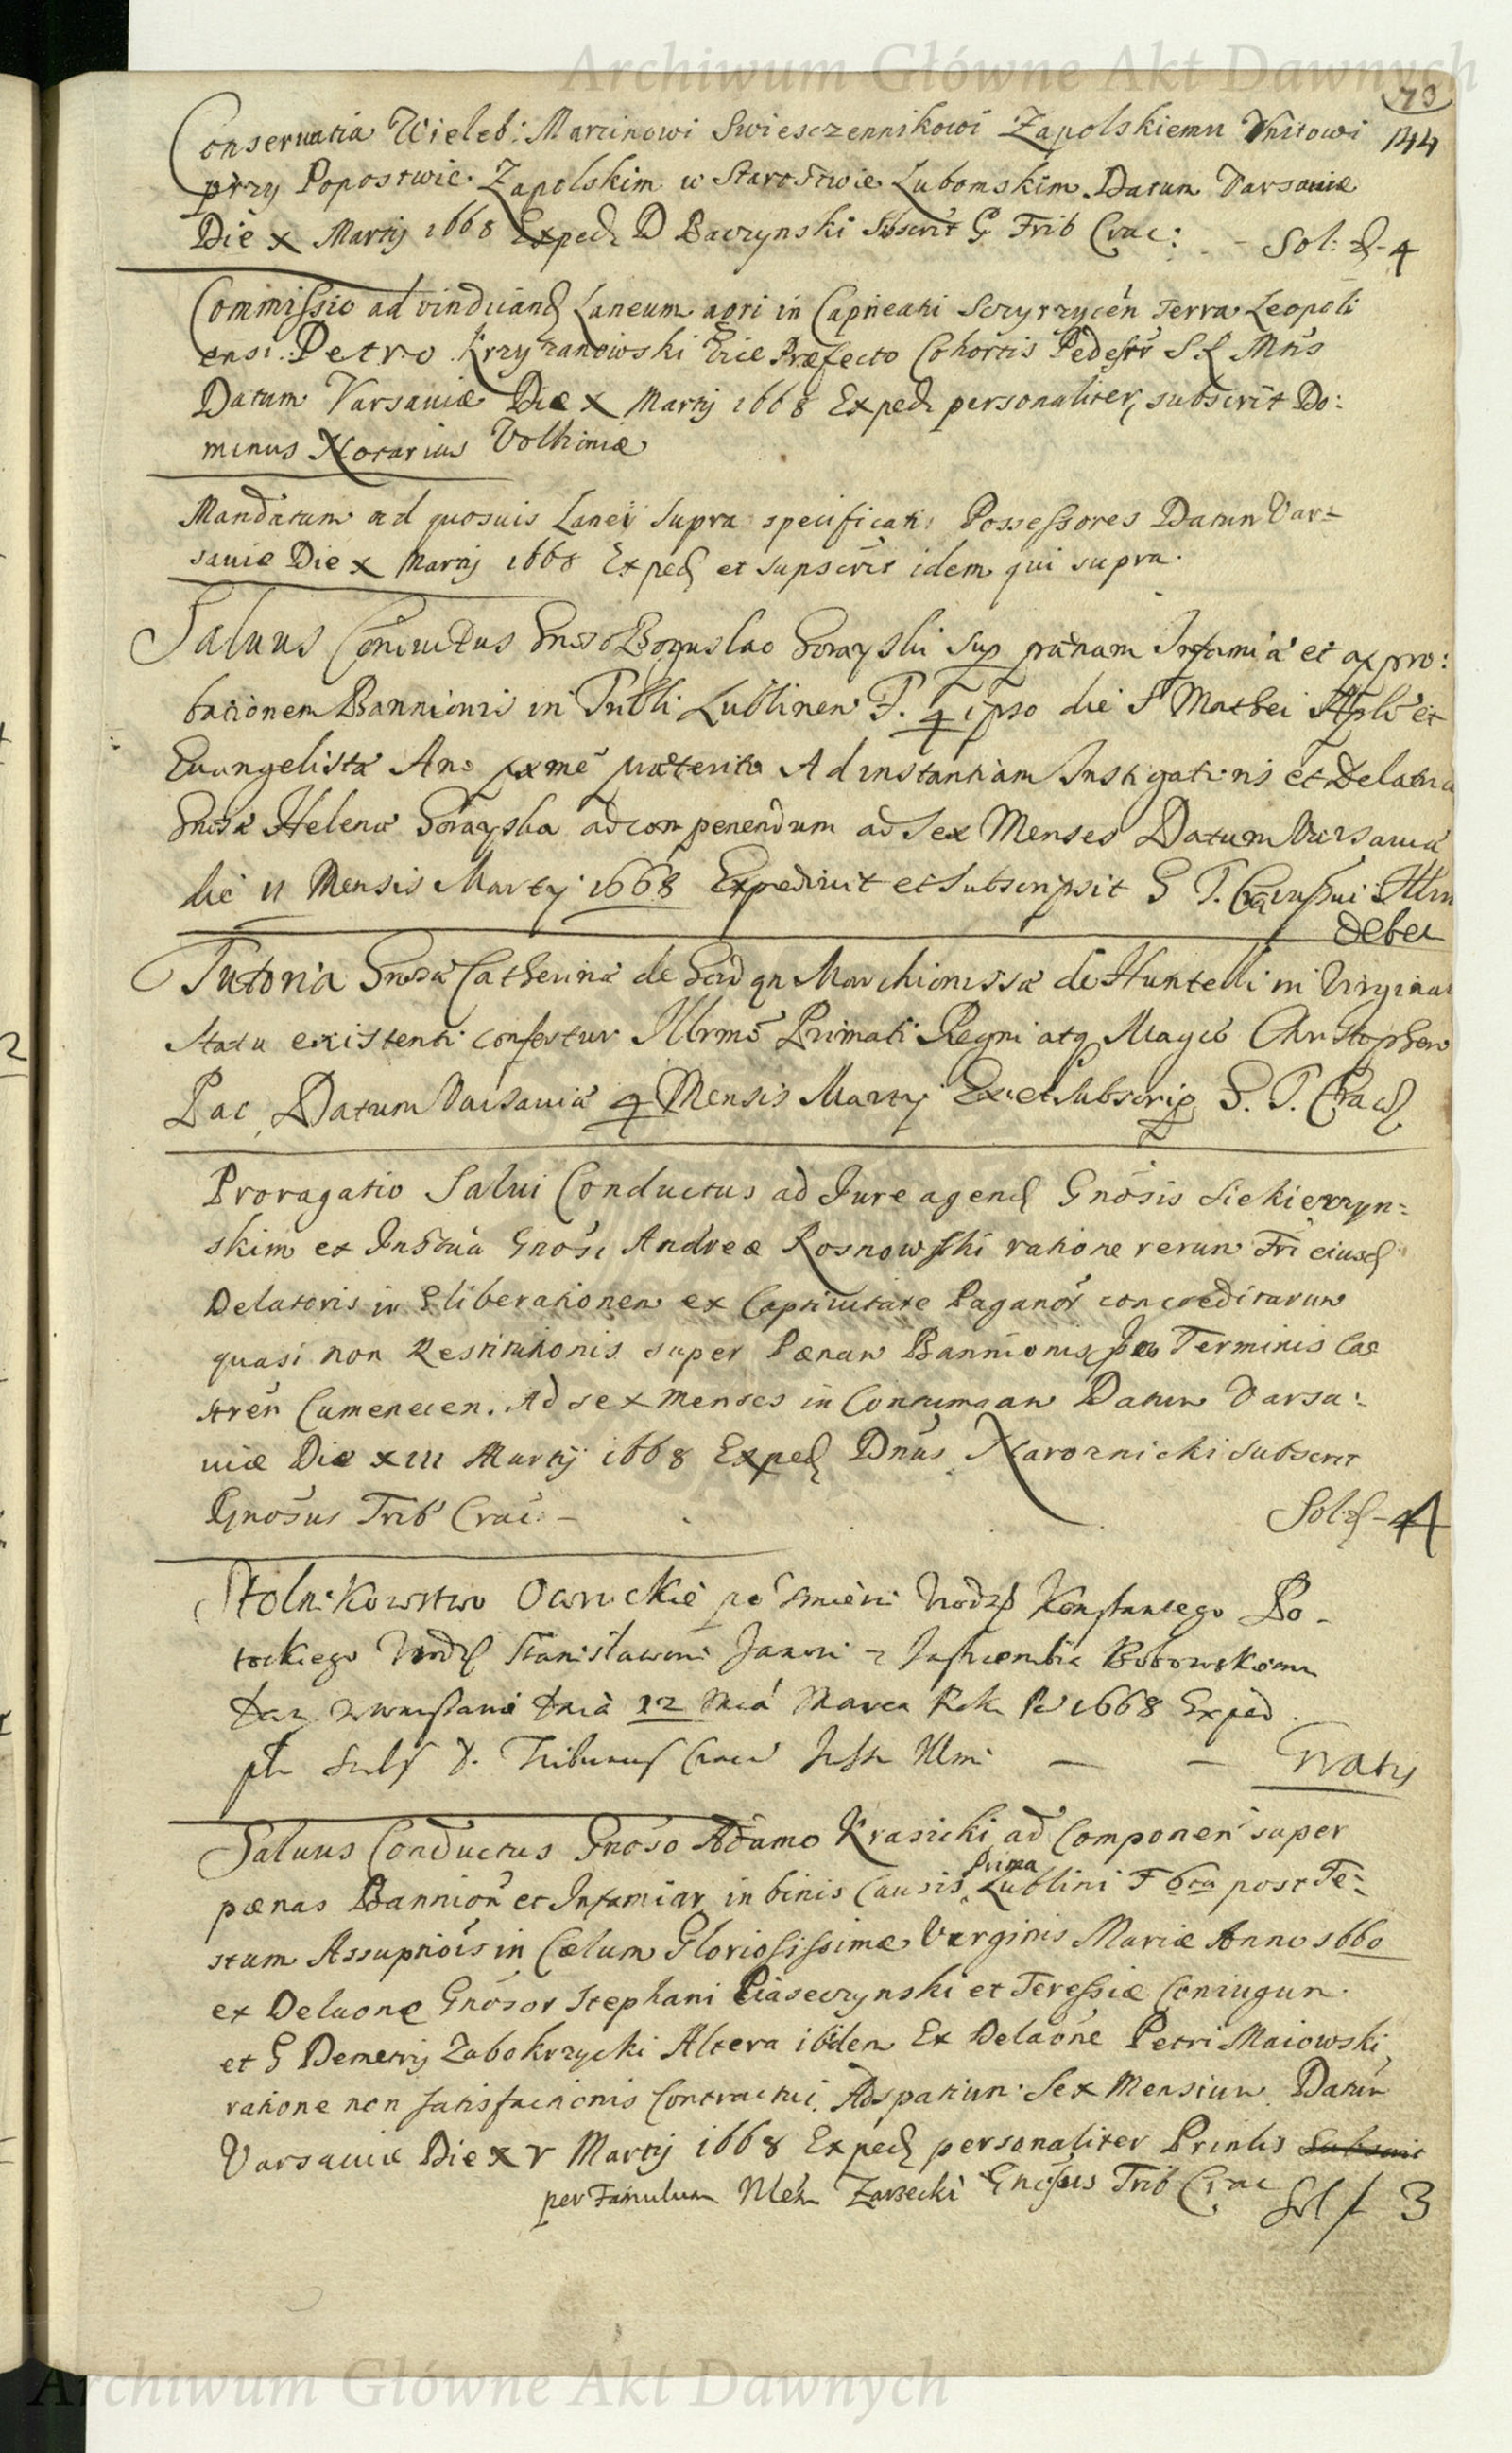 Archiwum Główne Akt Dawnych
73
144
Conseruatia Wieleb: Marcinowi Swiesczennikowi Zapolskiemu Vnitowi
przy Popostwie Zapolskim w Starostwie Lubomskim. Datum Varsauiæ
Die x Martij 1668 Exped D Baczynski Subscrit G Trib Crac: - Sol: fl-4
Commissio ad vindicand Laneum agri in Capneati Sczyrzycen Terra Leopoli
ensi. Petro Krzyzanowski Præfecto Cohortis Pedestr S R Mtis
Datum Varsauiæ Die x Martij 1668 Exped personaliter, subscrit Do:
minus Notarius Volhiniæ
Mandatum ad quosuis Lanei supra specificati Possessores Datum Var=
sauiæ Die x Martij 1668 Exped et supscrit idem qui supra.
Saluus Conductus Gnoso Boguslao Gorayski Sup pœnam Infamiæ et appro:
bationem Bannionis in Trbli Lublinen F. 4 ipso die S Mathei Apli et
Euangelistæ Ano pxme præterito Ad instantiam Instigatoris et Delatricis
Gnosæ Helenæ Gorayska ad componendum ad Sex Menses Datum Varsauiæ
die 11 Mensis Martij 1668 Expediuit et Subscripsit G T.
debet
Tutoria Gnosæ Catherinæ de Gordon Marchionissæ de Huntelli in Virginali
statu existenti confertur Illrmo Primati Regni atq Magco Christophero
Pac, Datum Varsauiæ 4 Mensis Martij Ex et Subscrip G. T. Crac
Prorogatio Salui Conductus ad Jure agend Gnosis Siekierzyn=
skim ex Instna Gnosi Andreæ Rosnowski ratione rerum Fri eiusd
Delatoris in Eliberationem ex Captiuitate Paganor concreditarum
quasi non Restitutionis super Pœnam Bannionis Terminis Cas
stren Camenecen. Ad sex menses in Contumam Datum Varsa:
uiæ Die xiii Martij 1668 Exped Dnus Naroznicki subscrit
Gnosus Trib Crac: - Sol: fl-4
Stolnikowstwo Owruckie po smierci Vrodz Konstantego Po-
tockiego Vrodz Stanisławowi Janowi z Jastrzembia Bobowskiemu
Dat w Warszawie dnia 12 Mca Marca Rok P 1668 Exped.
Subs G. Tribunus Crac Jussu Illmi - - Gratis
Saluus Conductus Gnoso Adamo Krasicki ad Componen super
pœnas Bannion et Infamiar in binis Causis Prima Lublini F 6ta post Fe=
stum Assuptiois in Cælum Gloriosissimæ Virginis Mariæ Anno 1660
ex Delaone Gnosor Stephani Piaseczynski et Teressiæ Coniugum.
et G Demetrij Zabokrzycki Altera ibidem Ex Delaone Petri Maiowski,
ratione non satisfactionis Contractui. Ad spatium Sex Mensium. Datum
Varsauiæ Die xv Martij 1668 Exped personaliter Prinlis Subscrit
per Famulum Zarzecki Gnosus Trib Crac Sol f 3
Archiwum Główne Akt Dawnych